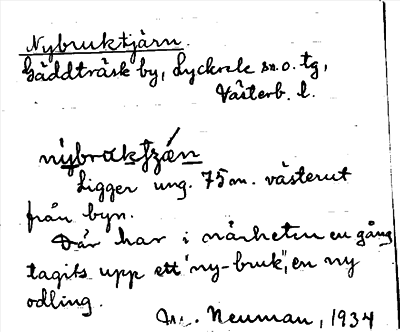 Nybruktjärn.
Gäddträsk by, Lycksele sn. o. tg,
Västerb. l.
nybrukstzǽn
Ligger ung. 75 m. västerut
från byn.
Där har i närheten en gång
tagits upp ett "ny-bruk", en ny
odling.
Neuman, 1934